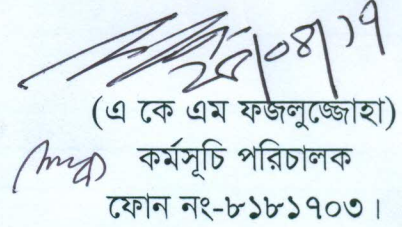 ২৫/০৪/১৭
(এ কে এম ফজলুজ্জোহা)
কর্মসূচি পরিচালক
ফোন নং-৮১৮১৭০৩।